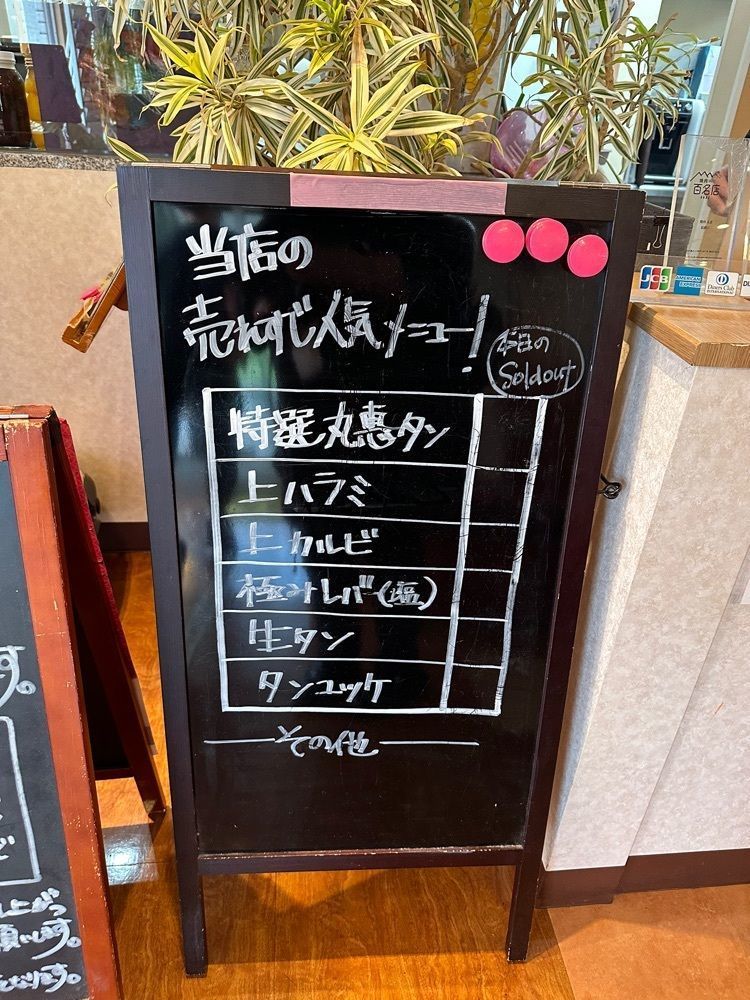 当店の
売れすじ人気メニュー!
今日の
Soldout
特選丸恵タン
上ハラミ
上カルビ
極みレバー(塩)
生タン
タンユッケ
その他
百名店
JCB
AMERICAN EXPRESS
Diners Club
INTERNATIONAL
す。
願いします。
なります。